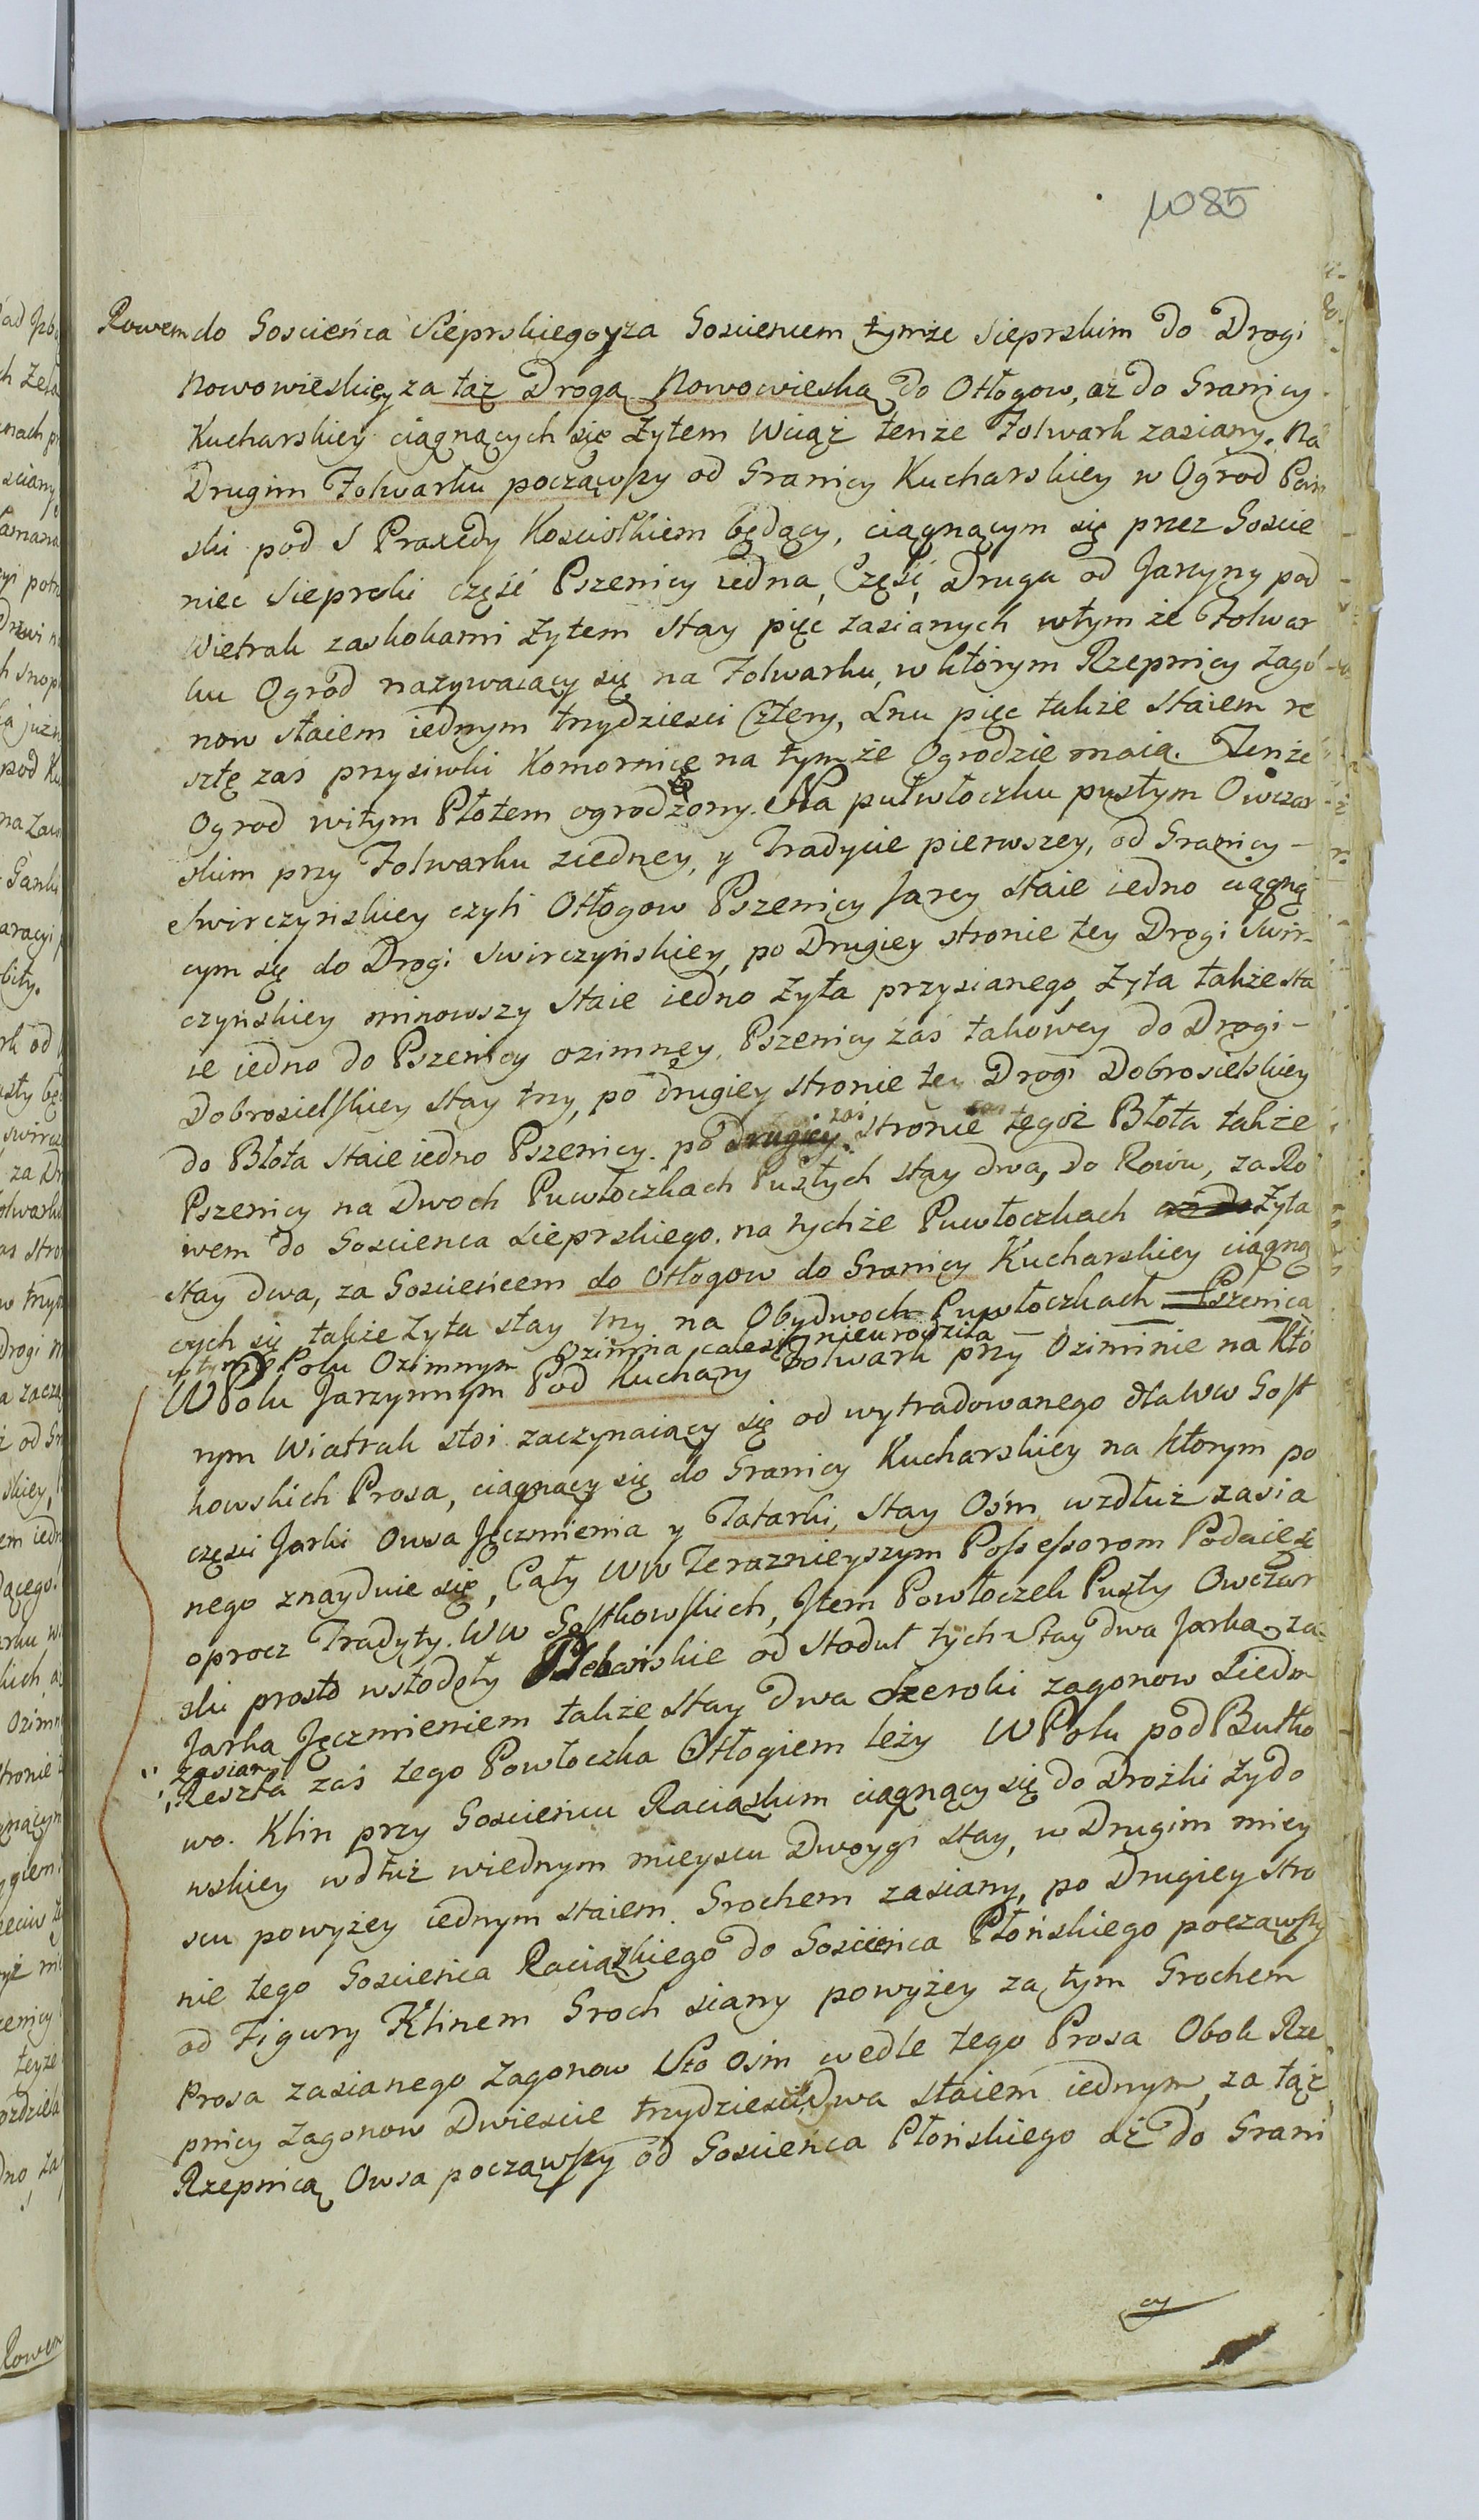 1085
Rowem do Goscieńca Sieprskiego, za Goscieńcem tymże Sieprskim do Drogi
Nowowieskiey za tąż Drogą Nowowieską do Otłogow, az do Granicy
Kucharskiey ciągnących się Żytem Wciąż tenże Folwark zasiany. Na
Drugim Folwarku począwszy od Granicy Kucharskiey w Ogrod Pań
ski pod S Praxedy Kosciołkiem będący, ciągnącym się przez Goscie
niec Sieprski część Pszenicy iedna, Część Druga od Jarzyny pod
Wietrak zaskokami Żytem stay pięć zasianych wtym że Folwar
ku Ogrod nazywaiący się na Folwarku, w którym Rzepnicy Zago
now staiem iednym trzydziesci Cztery, Lnu pięc także staiem re
sztę zas przysiwki Komornice na tymże Ogrodzie maią. Tenże
Ogrod witym Płotem ogrodzony. Na pułwłoczku pustym Owczar
skim przy Folwarku ziedney, y Tradycie pierwszey, od Granicy -
Swirczyńskiey czyli Otłogow Pszenicy Jarey staie iedno ciągną
cym się do Drogi Swirczyńskiey, po Drugiey stronie tey Drogi Swir-
czyńskiey minowszy staie iedno Żyta przysianego, Żyta także sta
ie iedno do Pszenicy ozimney, Pszenicy zas takowey do Drogi -
Dobrosielskiey stay trzy, po drugiey stronie tey Drogi Dobrosielskiey
do Błota staie iedno Pszenicy. po drugiey zas stronie tegoż Błota także
Pszenicy na Dwoch Puwłoczkach Pustych stay dwa, do Rowu, za Ro
wem do Goscienca Sieprskiego. na tychże Puwłoczkach aż do Żyta
stay dwa, za Goscieńcem do Otłogow do Granicy Kucharskiey ciągną
cych się także Żyta stay trzy na Obydwoch Puwłoczkach Pszenica
w tym Polu Ozimnym Ozimina cale się nieurodziła
W Polu Jarzynnym Pod Kuchary Folwark przy Oziminie na któ
rym Wiatrak stoi zaczynaiący się od wytradowanego dla WW Gost
kowskich Prosa, ciągnący się do Granicy Kucharskiey na którym po
częsci Jarki Owsa Jęczmienia y Tatarki, Stay Ośm wzdłuż zasia
nego znayduie się, Cały WW Teraznieyszym Possessorom Podaie się
oprocz Tradyty. WW Gostkowskich, Item Powłoczek Pusty Owczar
ski prosto wstodoły Plebańskie od Stoduł tych Stay dwa Jarka, za
Jarka Jęczmieniem także Stay dwa szeroki zagonow Siedm
zasiany
Reszta zaś tego Powłoczka Otłogiem leży W Polu pod Butko
wo. Klin przy Goscieńcu Raciąskim ciągnący się do Drożki Żydo
wskiey wdłuż wiednym mieyscu Dwoygi stay, w Drugim miey
scu powyżey iednym staiem. Grochem zasiany, po Drugiey stro
nie tego Goscieńca Raciąskiego do Goscieńca Płońskiego począwszy
od Figury Klinem Groch siany powyżey za tym Grochem
Prosa zasianego Zagonow Sto ośm wedle tego Prosa Obok Rze
pnicy Zagonow Dwiescie trzydziesci Dwa staiem iednym, za tąż
Rzepnicą Owsa począwszy od Goscieńca Płońskiego aż do Grani
cy